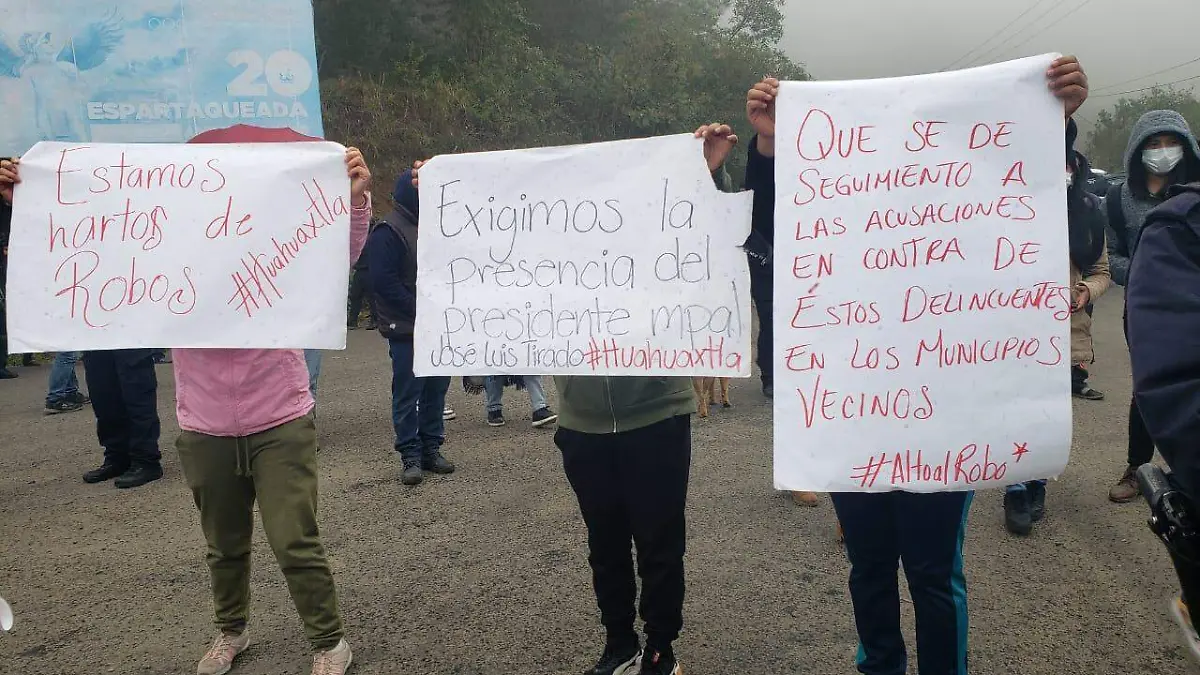 20
ESPARTAQUEADA
Estamos
hartos de
Robos
#Huahuaxtla
Exigimos la
presencia del
presidente mpal
José Luis Tirado #Huahuaxtla
QUE SE DE
SEGUIMIENTO A
LAS ACUSACIONES
EN CONTRA DE
ÉSTOS DELINCUENTES
EN LOS MUNICIPIOS
VECINOS
#AltoalRobo*